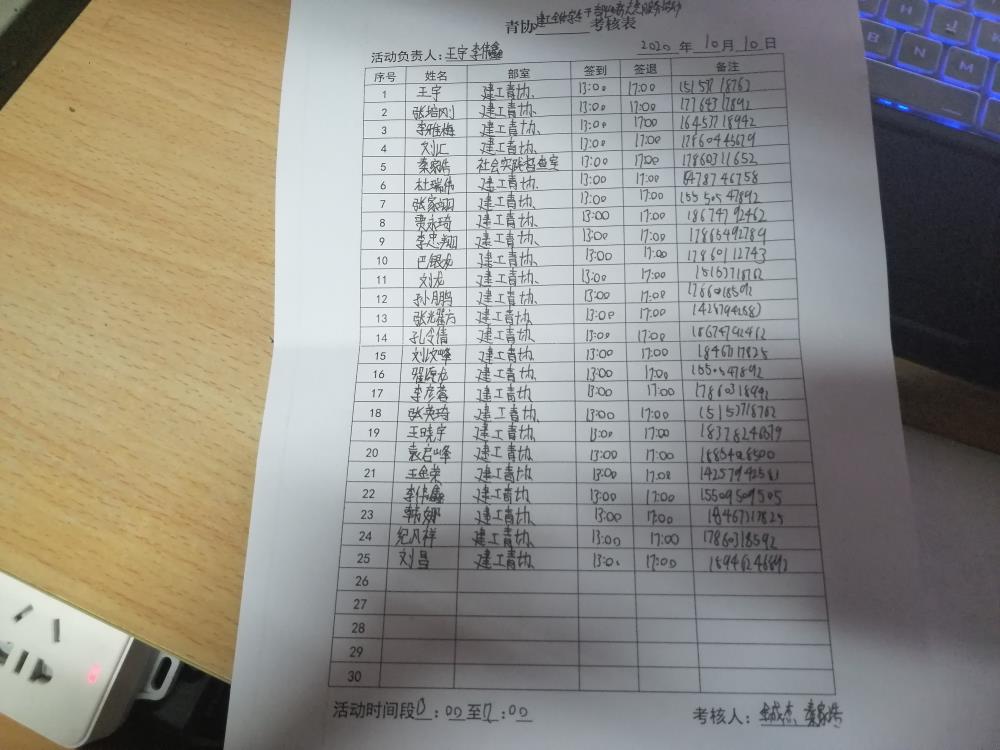 青协 考核表
活动负责人：王宇 李伟鑫 2020 年 10 月 10 日
序号 姓名 部室 签到 签退 备注
1 王宇 建工青协 13:00 17:00 15157718762
2 张培刚 建工青协 13:00 17:00 17764317892
3 李雅梅 建工青协 13:00 17:00 16457718942
4 刘汇 建工青协 17:00 17:00 17860445679
5 秦家浩 社会实践督查室 13:00 17:00 17860311652
6 杜瑞伟 建工青协 13:00 17:00 18478746758
7 张家翊 建工青协 13:00 17:00 15550547892
8 贾永琦 建工青协 13:00 17:00 18674792462
9 李忠翔 建工青协 13:00 17:00 17865492789
10 巴银龙 建工青协 13:00 17:00 17860112743
11 刘龙 建工青协 13:00 17:00 15157718762
12 孙月鹏 建工青协 13:00 17:00 17860318592
13 张光耀方 建工青协 13:00 17:00
14 孔令倩 建工青协 13:00 17:00 18674792462
15 刘欣峰 建工青协 13:00 17:00 18467717825
16 翟源龙 建工青协 13:00 17:00 15550547892
17 李彦蓉 建工青协 13:00 17:00 17860318992
18 张英琦 建工青协 13:00 17:00 15157718762
19 王晓宇 建工青协 13:00 17:00 18378246679
20 袁启峰 建工青协 13:00 17:00 18854208500
21 王金荣 建工青协 13:00 17:00 14257942581
22 李伟鑫 建工青协 13:00 17:00 15509509505
23 韩娜 建工青协 13:00 17:00 18467717825
24 纪凡祥 建工青协 13:00 17:00 17860318592
25 刘昌 建工青协 13:00 17:00 18946246892
26
27
28
29
30
活动时间段13：00至17：00 考核人： 秦家浩